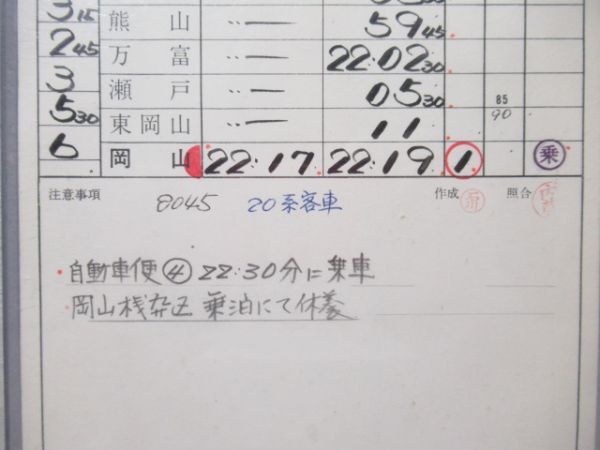 3 15 熊山 ‥― 59 45
2 45 万富 ‥― 22・02 30
3 瀬戸 ‥― 05 30 85
5 30 東岡山 ‥― 11 90
6 岡山 22・17 22・19 1 乗
注意事項 8045 20系客車 作成 照合
・自動車便④ 22・30分に乗車
・岡山桟弁正 乗泊にて休養